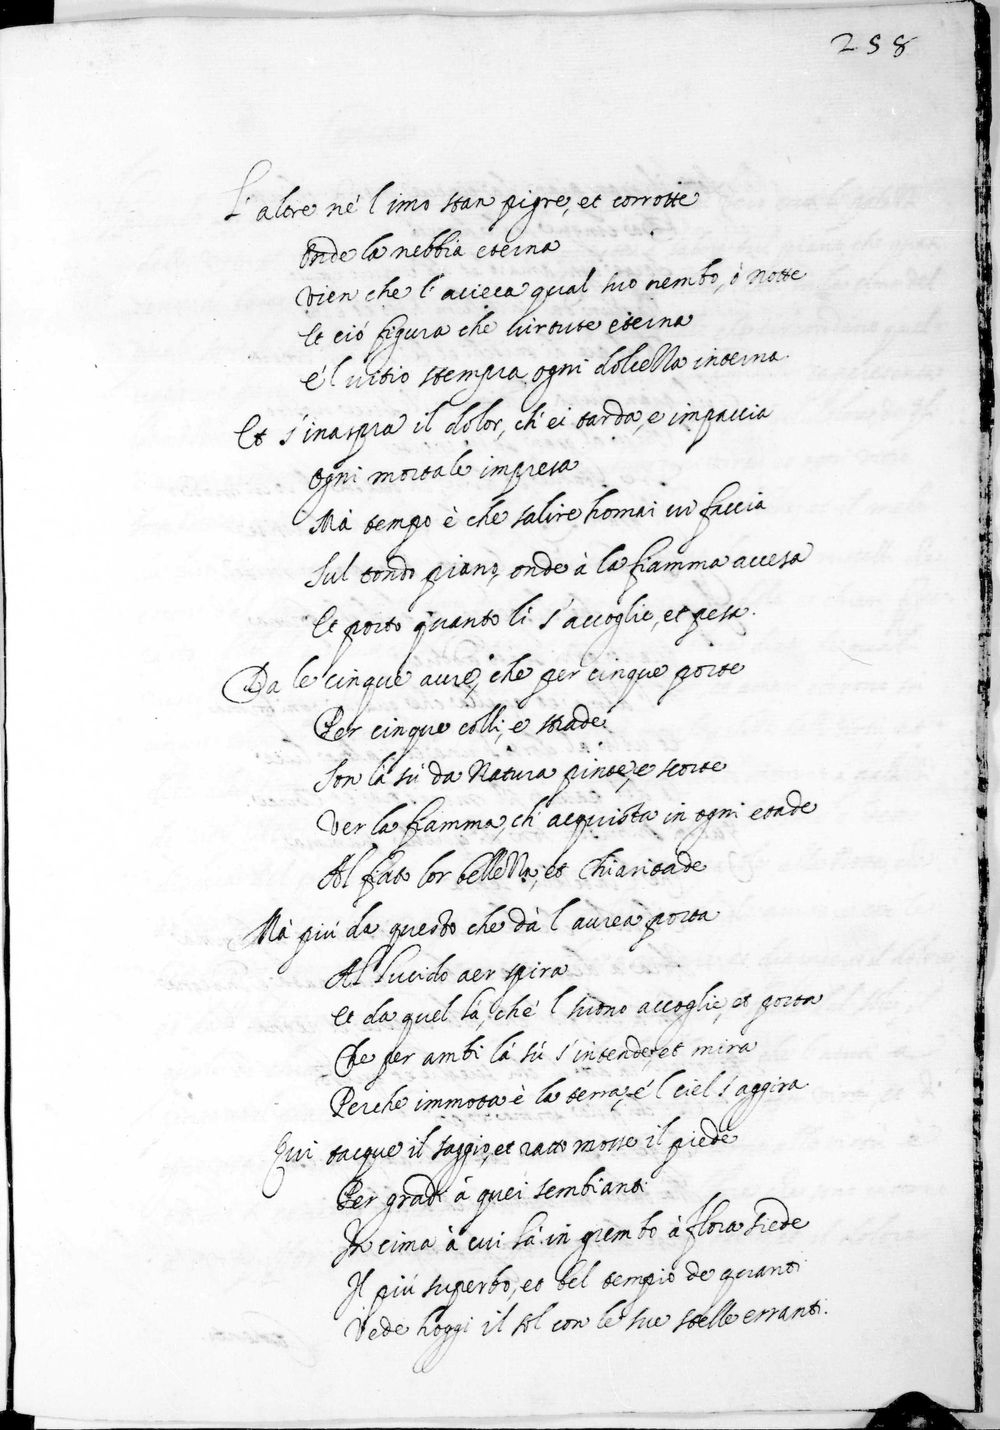 258
L'altre né l imo stan pigre, et corrotte
Onde la nebbia eterna
Vien che l'acieca qual suo nembo, ò notte
Et ciò figura che virtute eterna
E'l vitio stempra ogni dolcezza interna.
Et s'inaspra il dolor, ch'ei tarda, e impaccia
Ogni mortale impresa
Mà tempo è che salire homai vi faccia
Sul tondo piano, onde à la fiamma accesa
Et porto quanto lì s'accoglie, et pesa.
Da le cinque aure, che per cinque porte
Per cinque colli, e strade
Son là sù da Natura pinte, e scorte
Ver la fiamma, ch'acquista in ogni etade
Al fiato lor bellezza, et chiaritade
Mà più da questo che dà l aurea porta
Al lucido aer spira
Et da quel là, che'l suono accoglie, et porta
Che per ambi là sù s'intende, et mira
Perche immota è la terra, e'l ciel s'aggira
Qui tacque il saggio, et ratto mosse il piede
Per gradi à quei sembianti
In cima à cui là in grembo à flora siede
Il più superbo, et bel tempio de quanti
Vede hoggi il sol con le sue stelle erranti.